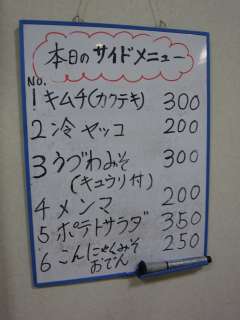 本日のサイドメニュー
No.
1 キムチ(カクテキ) 300
2 冷ヤッコ 200
3 うづわみそ 300
(キュウリ付)
4 メンマ 200
5 ポテトサラダ 350
6 こんにゃくみそ 250
おでん